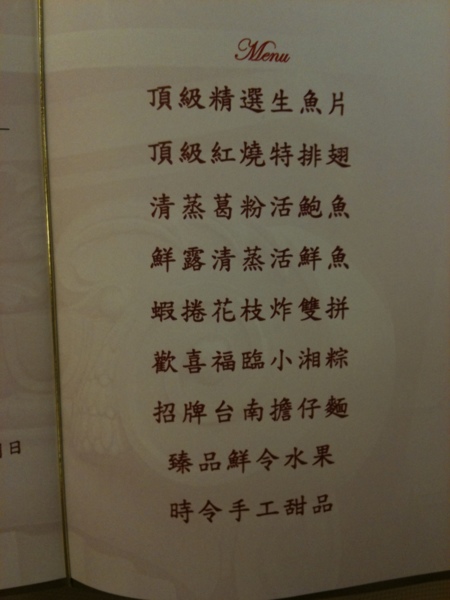 Menu
頂級精選生魚片
頂級紅燒特排翅
清蒸葛粉活鮑魚
鮮露清蒸活鮮魚
蝦捲花枝炸雙拼
歡喜福臨小湘粽
招牌台南擔仔麵
臻品鮮令水果
時令手工甜品
日